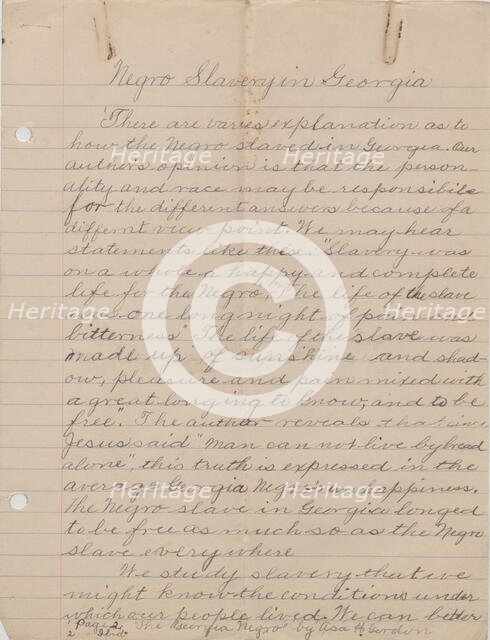 Negro Slavery in Georgia
'There are varies explanation as to
how the Negro slaved in Georgia. Our
author's opinion is that the person-
ality and race may be responsibile
for the different answers because of a
differnt view point. We may hear
statements like these. "Slavery was
on a whole a happy and complete
life for the Negro," The life of the slave
was one long night of pain and
bitterness" The life of the slave was
made up of sunshine and shad-
ow, pleasure and pain mixed with
a great longing to know, and to be
free". The author reveals that since
Jesus said "Man can not live by bread
alone", this truth is expressed in the
average Georgia Negroes happiness.
The Negro slave in Georgia longed
to be free as much so as the Negro
slave everywhere
We study slavery that we
might know the conditions under
which our people lived. We can better
Page 2 The Georgia Negro by Asa H. Gordon
2 Ibid.
Heritage
Heritage
Heritage
Heritage
Heritage
Heritage
Heritage
Heritage
Heritage
C